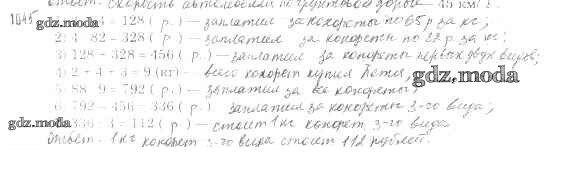 Ответ: скорость автомобиля по грунтовой дороге 45 км/
1045 gdz.moda 4 = 128 ( р.) — заплатил за конфеты по 65 р за кг;
2) 4 · 82 = 328 ( р.) — заплатил за конфеты по за кг;
3) 128 + 328 = 456 ( р.) — заплатил за конфеты первых двух видов;
4) 2 + 4 + 3 = 9 (кг) — всего конфет купил Петя,
gdz.moda
5) 88 · 9 = 792 ( р.) — заплатил за все конфеты;
6) 792 − 456 = 336 ( р.) заплатил за конфеты 3-го вида;
gdz.moda 336 : 3 = 112 ( р.) — стоит 1 кг конфет 3-го вида
Ответ: 1 кг конфет 3-го вида стоит 112 рублей.